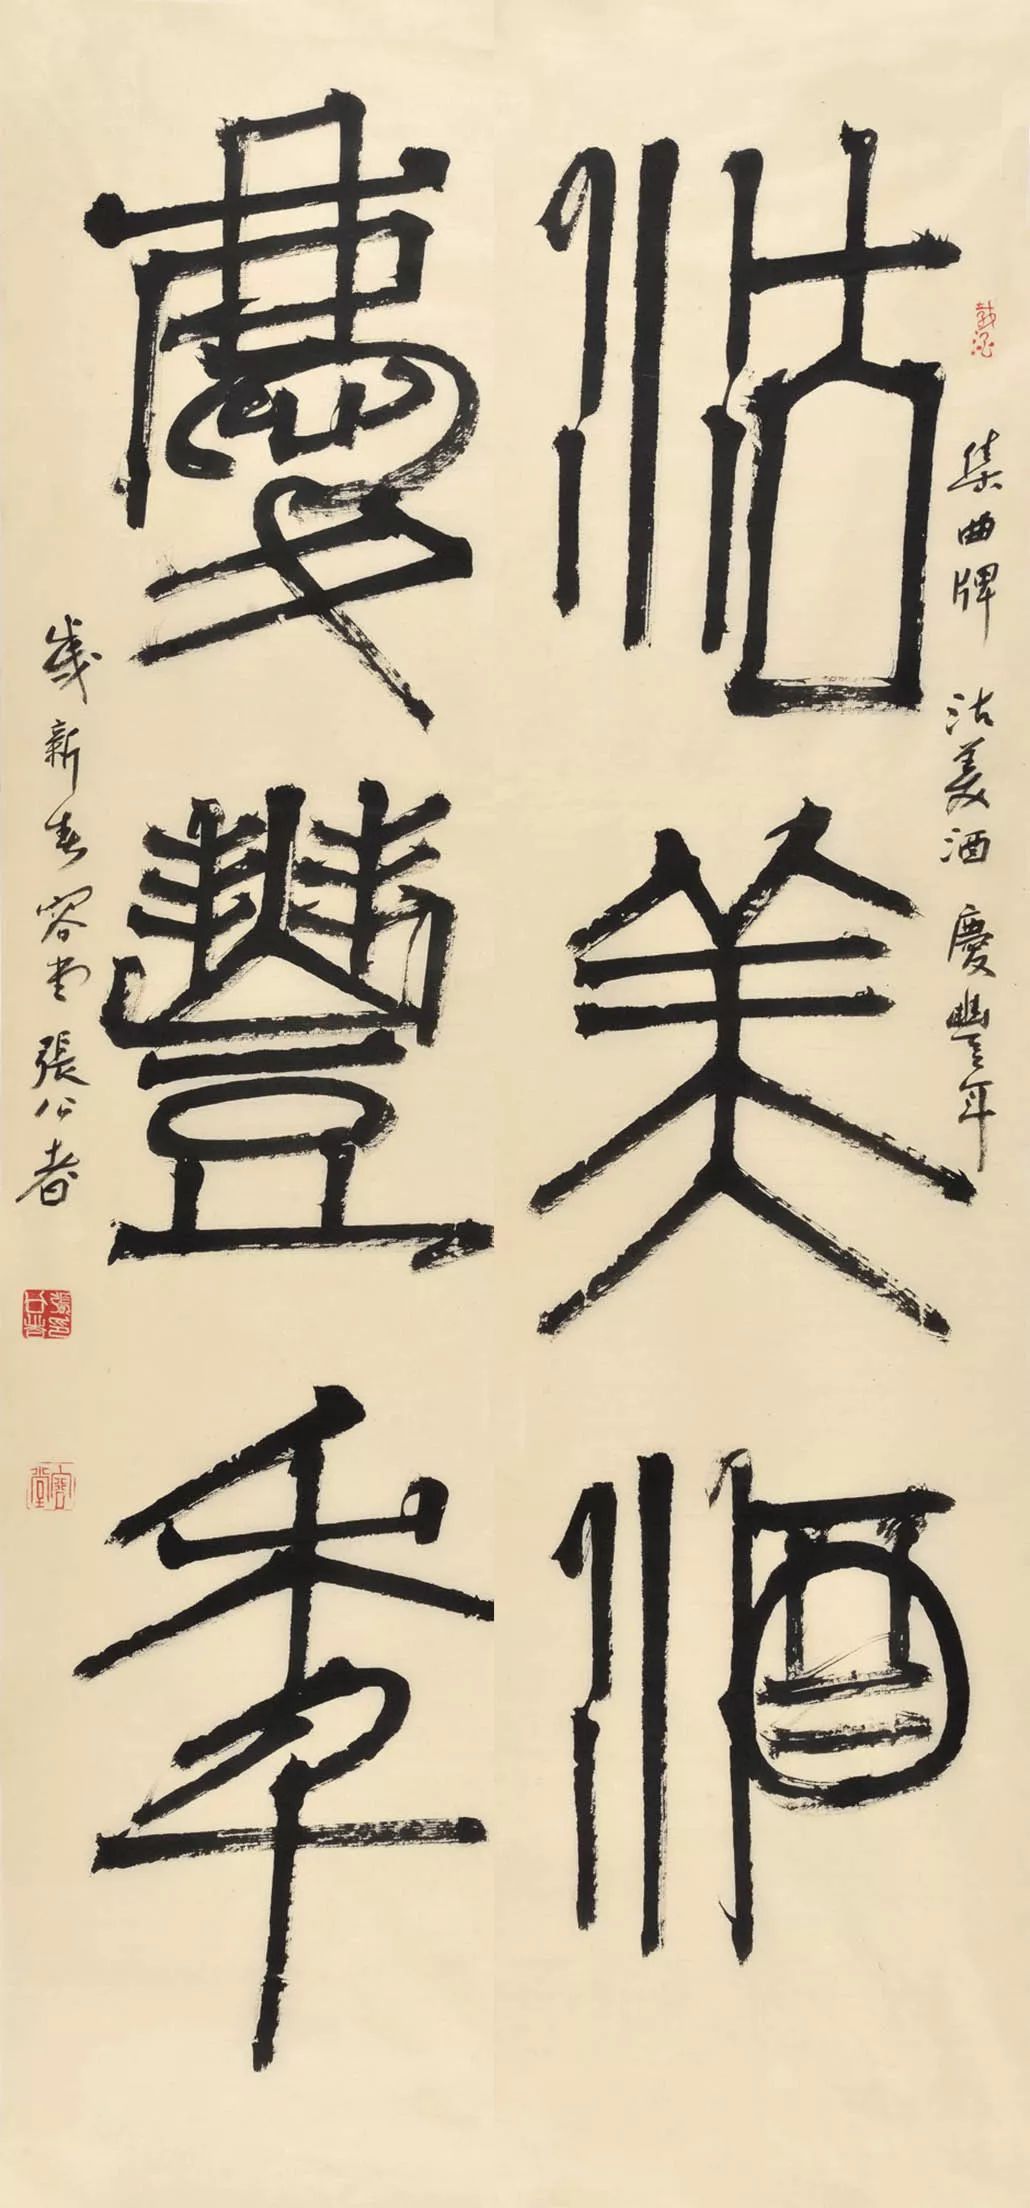 沽美酒
慶豐年
集曲牌 沽美酒 慶豐年
歲新春容堂張公者